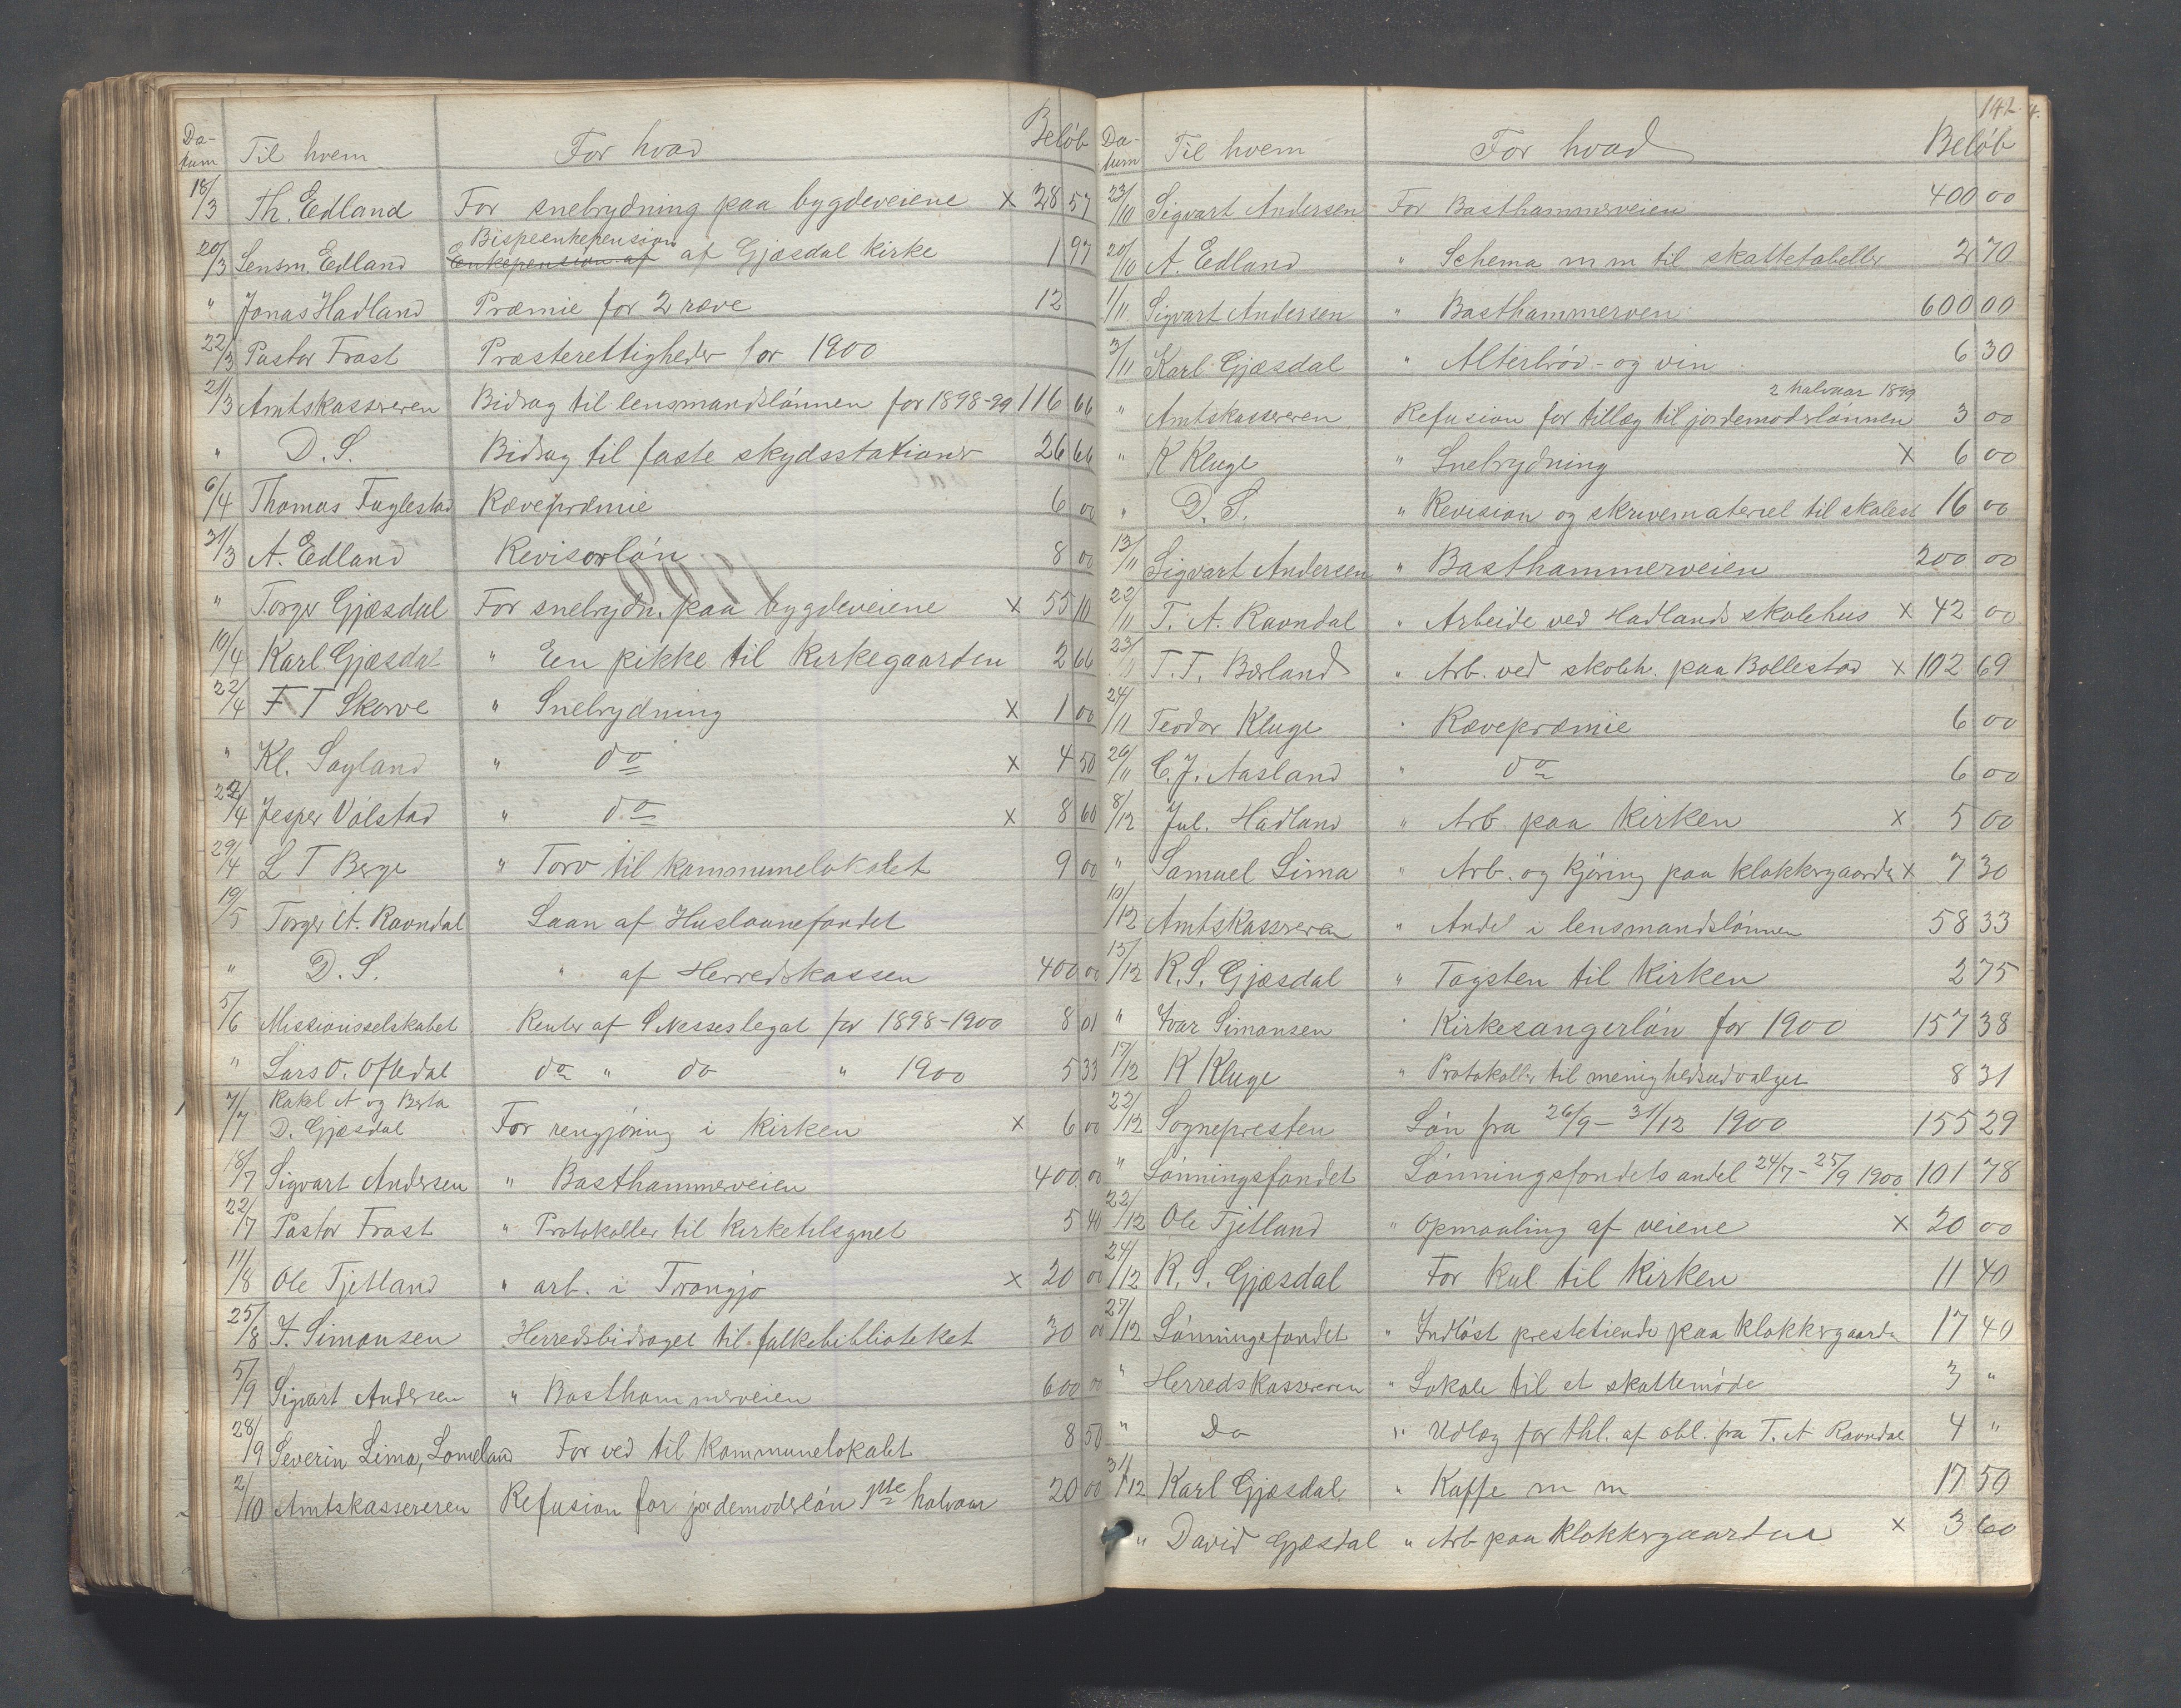 Da-tum Til hvem For hvad Beløb
18/3 Th. Edland For snebrydning paa bygdeveiene x 28 57
Bispeenkepension
20/3 Lensm. Edland Enkepension af af Gjæsdal kirke 1 97
" Jonas Hadland Præmie for 2 ræve 12
22/3 Pastor Frost Præsterettigheder for 1900
21/3 Amtskassereren Bidrag til lensmandslønnen for 1898-99 116 66
" D. S. Bidrag til faste skydsstationer 26 66
6/4 Thomas Fuglestad Rævepræmie 6 00
31/3 A. Edland Revisorløn 8 00
" Torger Gjæsdal For snebrydn. paa bygdeveiene x 55 10
10/4 Karl Gjæsdal " Een pikke til Kirkegaarden 2 66
22/4 F T Skurve " Snebrydning x 1 00
" Kl. Søyland " do x 4 50
22/4 Jesper Vølstad " do x 8 60
29/4 L T Berge " Torv til kommunelokalet 9 00
19/5 Torger A. Ravndal Laan af Huslaanefondet
" D. S. " af Herredskassen 400 00
5/6 Missionsselskabet Renter af S Nesses legat for 1898-1900 8 01
" Lars O. Oftedal do " do " 1900 5 33
Rakel A og Berta
7/7 D. Gjæsdal For rengjøring i kirken x 6 00
18/7 Sigvart Andersen " Basthammerveien 400 00
22/7 Pastor Frost " Protokoller til kirketilsynet 5 40
11/8 Ole Tjetland " arb. i Trongjo x 20 00
25/8 I. Simonsen Herredsbidraget til folkebiblioteket 30 00
5/9 Sigvart Andersen " Basthammerveien 600 00
28/9 Severin Lima, Lomeland For ved til Kommunelokalet 8 50
2/10 Amtskassereren Refusion for jordemoderløn 1ste halvaar 20 00
142
Da-tum Til hvem For hvad Beløb
23/10 Sigvart Andersen For Basthammerveien 400 00
20/10 A. Edland " Schema m m til skattetabeller 2 70
1/11 Sigvart Andersen " Basthammerven 600 00
3/11 Karl Gjæsdal " Alterbrød- og vin 6 30
2 halvaar 1899
" Amtskassereren Refusion for tillæg til jordemoderlønnen 3 00
" K Kluge " Snebrydning x 6 00
" D. S. " Revision og skrivemateriel til skolest 16 00
13/11 Sigvart Andersen " Basthammerveien 200 00
22/11 T. A. Ravndal " Arbeide ved Hadlands skolehus x 42 00
23/11 T. T. Børland " Arb. ved skoleh. paa Bollestad x 102 69
24/11 Teodor Kluge " Rævepræmie 6 00
26/11 C. J. Aasland " do 6 00
8/12 Jul. Hadland " Arb. paa Kirken x 5 00
" Samuel Lima " Arb. og kjøring paa klokkergaarden x 7 30
10/12 Amtskassereren " Andel i lensmandslønnen 58 33
15/12 R. S. Gjæsdal " Tagsten til kirken 2 75
" Ivar Simonsen " Kirkesangerløn for 1900 157 38
17/12 K Kluge " Protokoller til menighedsudvalget 8 31
22/12 Sognepresten Løn fra 26/9 - 31/12 1900 155 29
" Lønningsfondet Lønningsfondets andel 24/7 - 25/9 1900 101 78
22/12 Ole Tjetland " opmaaling af veiene x 20 00
24/12 R. S. Gjæsdal For kul til kirken 11 40
27/12 Lønningsfondet " Indløst prestetiende paa klokkergaarden 17 40
" Herredskassereren " Lokale til et skattemøde 3 "
" Do " Udlæg for thl. af obl. fra T. A Ravndal 4 "
31/12 Karl Gjæsdal " Kaffe m m 17 50
" David Gjæsdal " Arb paa klokkergaarden x 3 60